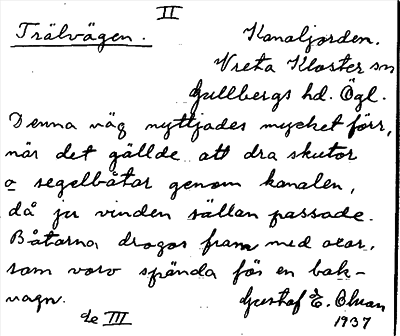 II
Trälvägen. Kanaljorden.
Vreta Kloster sn
Gullbergs hd. Ögl.
Denna väg nyttjades mycket förr,
när det gällde att dra skutor
o segelbåtar genom kanalen,
då ju vinden sällan passade.
Båtarna drogos fram med oxar,
som voro spända för en bak-
vagn. Gustaf E. Olsson
se III 1937